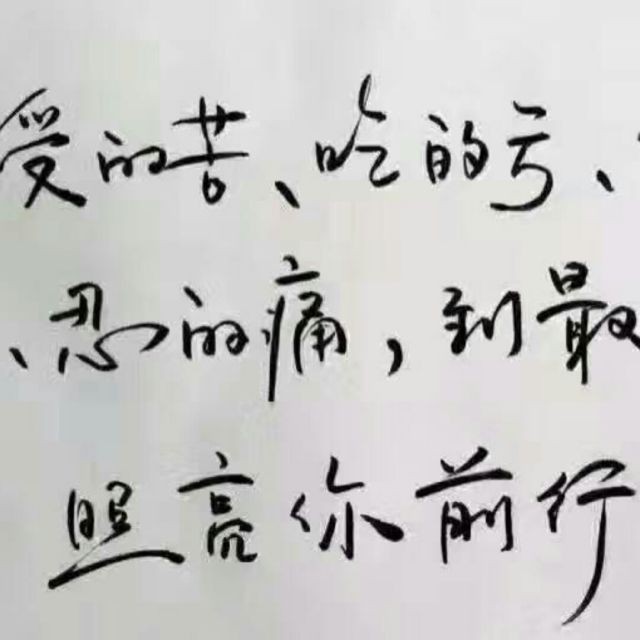 受的苦、吃的亏、
、忍的痛，到最
照亮你前行